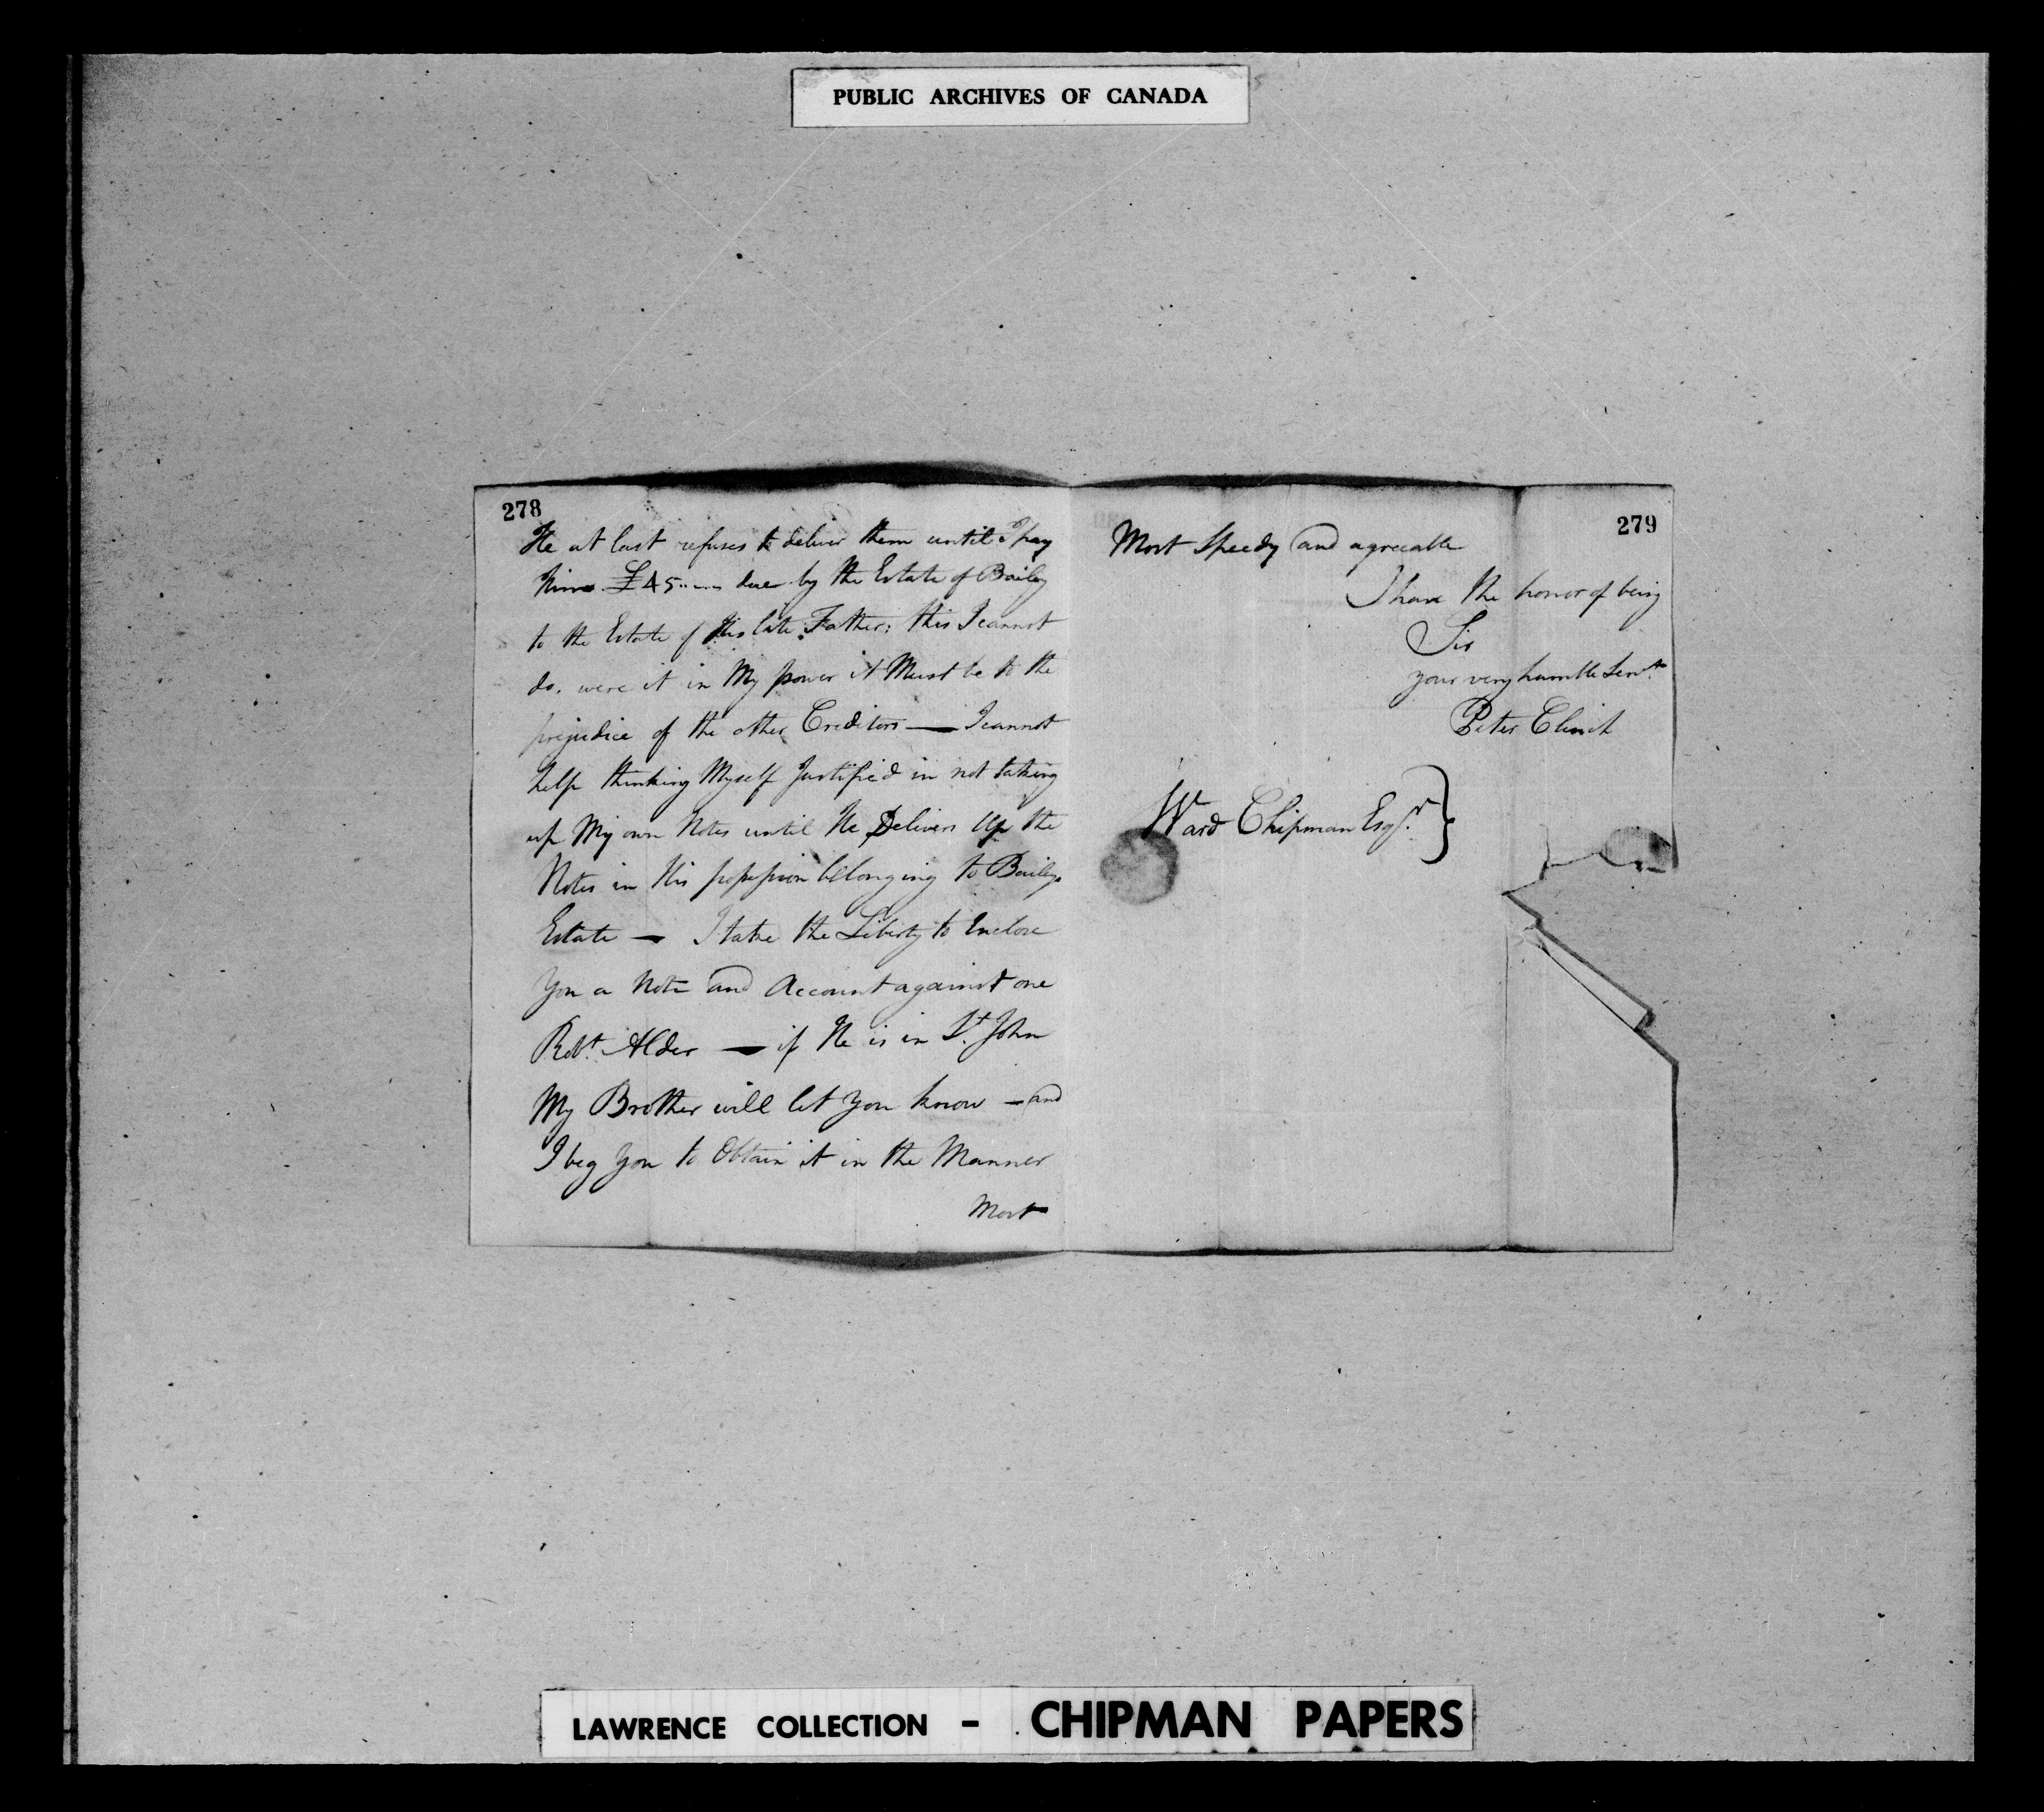 PUBLIC ARCHIVES OF CANADA
278
He at last refuses to deliver them until I pay
him £45..-..- due by the Estate of Bailey
to the Estate of His late Father; this I cannot
do. were it in My power it Must be to the
prejudice of the other Creditors — I cannot
help thinking Myself Justified in not taking
up My own Notes until He Delivers Up the
Notes in His possession belonging to Baileys
Estate — I take the Liberty to Enclose
You a Note and Account against one
Robt. Alder — if He is in St. John
My Brother will let You know — and
I beg You to Obtain it in the Manner
Most
279
Most Speedy and agreeable
I have the honor of being
Sir
your very humble Servt.
Peter Clinch
Ward Chipman Esqr. }
LAWRENCE COLLECTION - CHIPMAN PAPERS